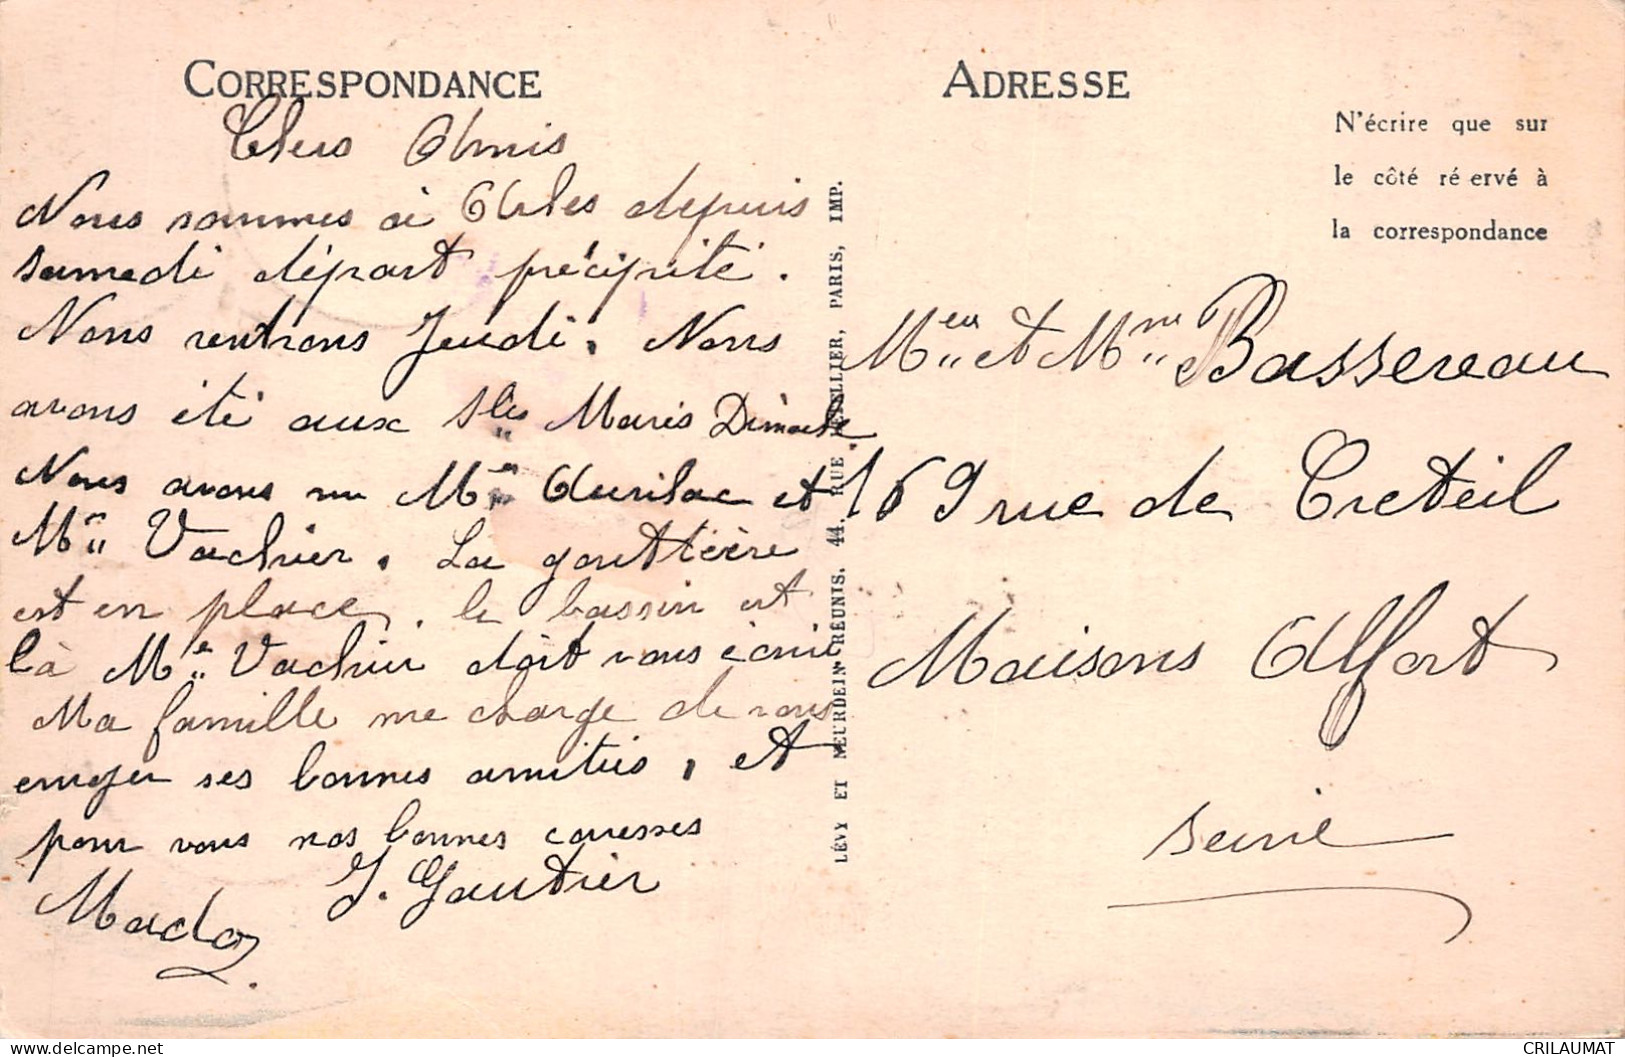 CORRESPONDANCE
Chers Amis
Nous sommes à Arles depuis
samedi départ précipité.
Nous rentrons Jeudi. Nous
avons été aux Stes Maries Dimche
Nous avons vu Mr Aurilac et
Mme Vachier. La gouttière
est en place, le bassin est
là Mme Vachier doit vous écrire
Ma famille me charge de vous
envoyer ses bonnes amitiés, et
pour vous nos bonnes caresses
J. Gautier
Mado
LÉVY ET NEURDEIN RÉUNIS. 44. RUE LETELLIER, PARIS, IMP.
ADRESSE
N'écrire que sur
le côté réservé à
la correspondance
Meur et Mme Bassereau
169 rue de Creteil
Maisons Alfort
Seine
CRILAUMAT